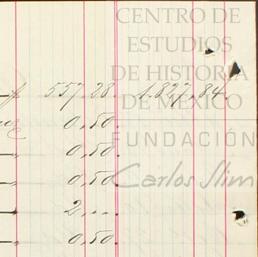 CENTRO DE
ESTUDIOS
DE HISTORIA
DE MÉXICO
557.28. 1.827.84
0,50.
FUNDACIÓN
0,50.
0,50
Carlos Slim
2,...
0,50.